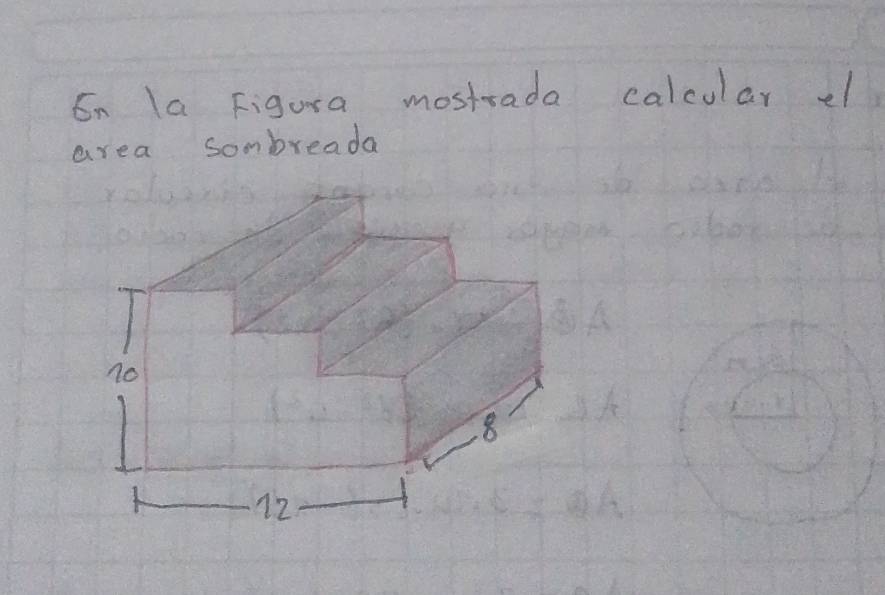 En la Figura mostrada calcular el
area sombreada
10
8
12